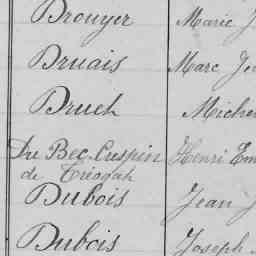 Brouyer Marie J
Bruais Marc Jo
Bruch Michel
Du Bec Crespin Henri Em
de
Dubois Jean J
Dubois Joseph